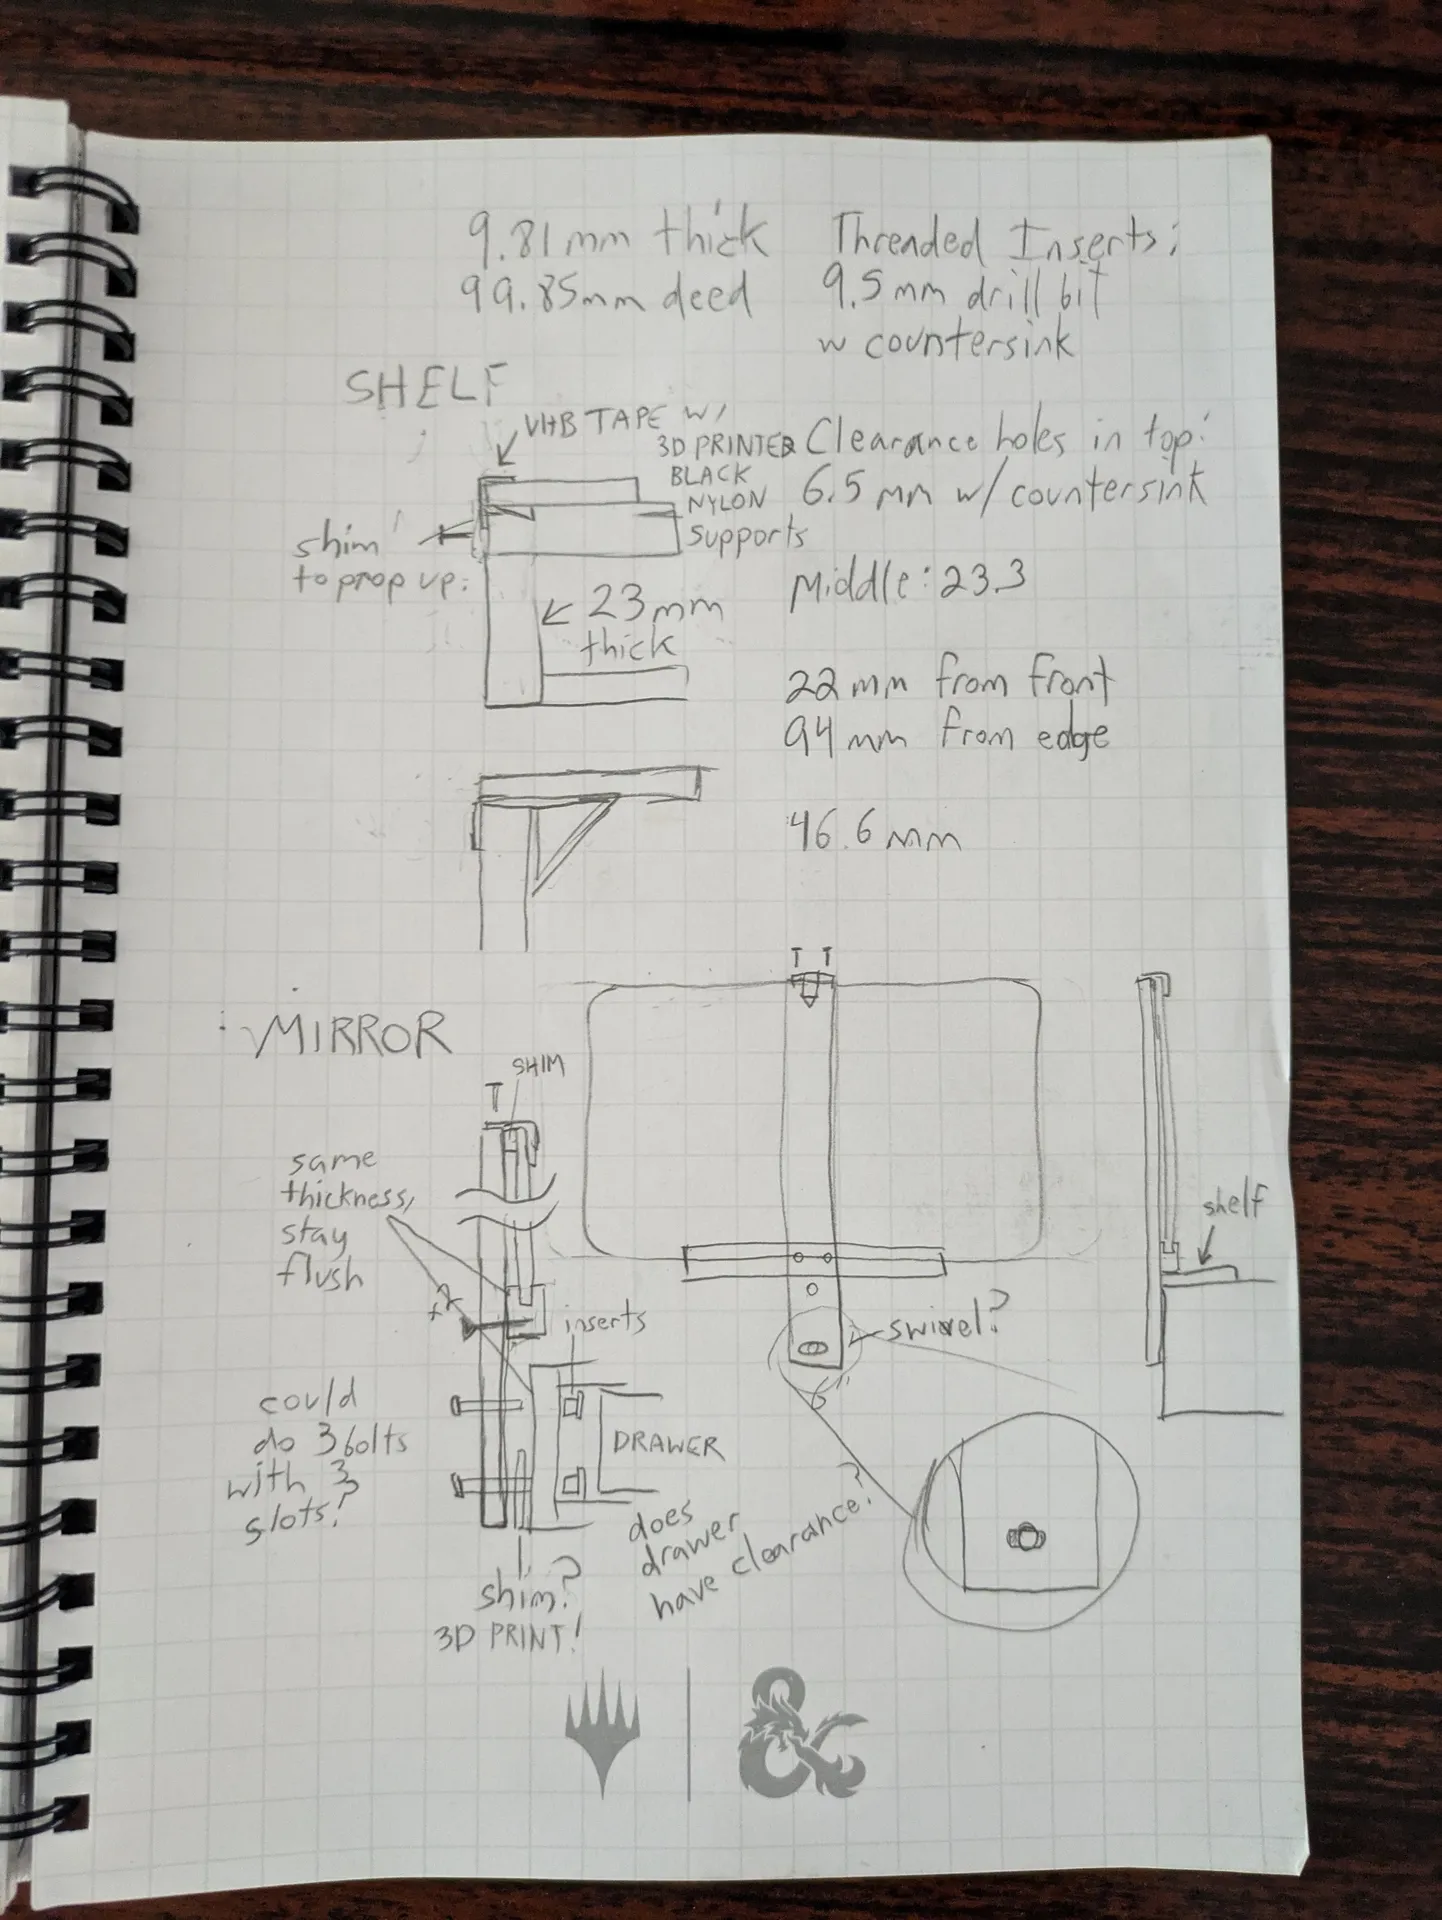 9.81mm thick
99.85mm deed
Threaded Inserts:
9.5mm drill bit
w countersink
SHELF
VHB TAPE W/
3D PRINTED
BLACK
NYLON
supports
Clearance holes in top:
6.5 mm w/ countersink
shim
to prop up.
23mm
thick
Middle: 23.3
22mm from front
94 mm from edge
46.6 mm
MIRROR
T T
SHIM
T
same
thickness,
stay
flush
inserts
shelf
swivel?
6"
could
do 3 bolts
with 3
slots?
DRAWER
does
drawer
have clearance?
shim?
3D PRINT!